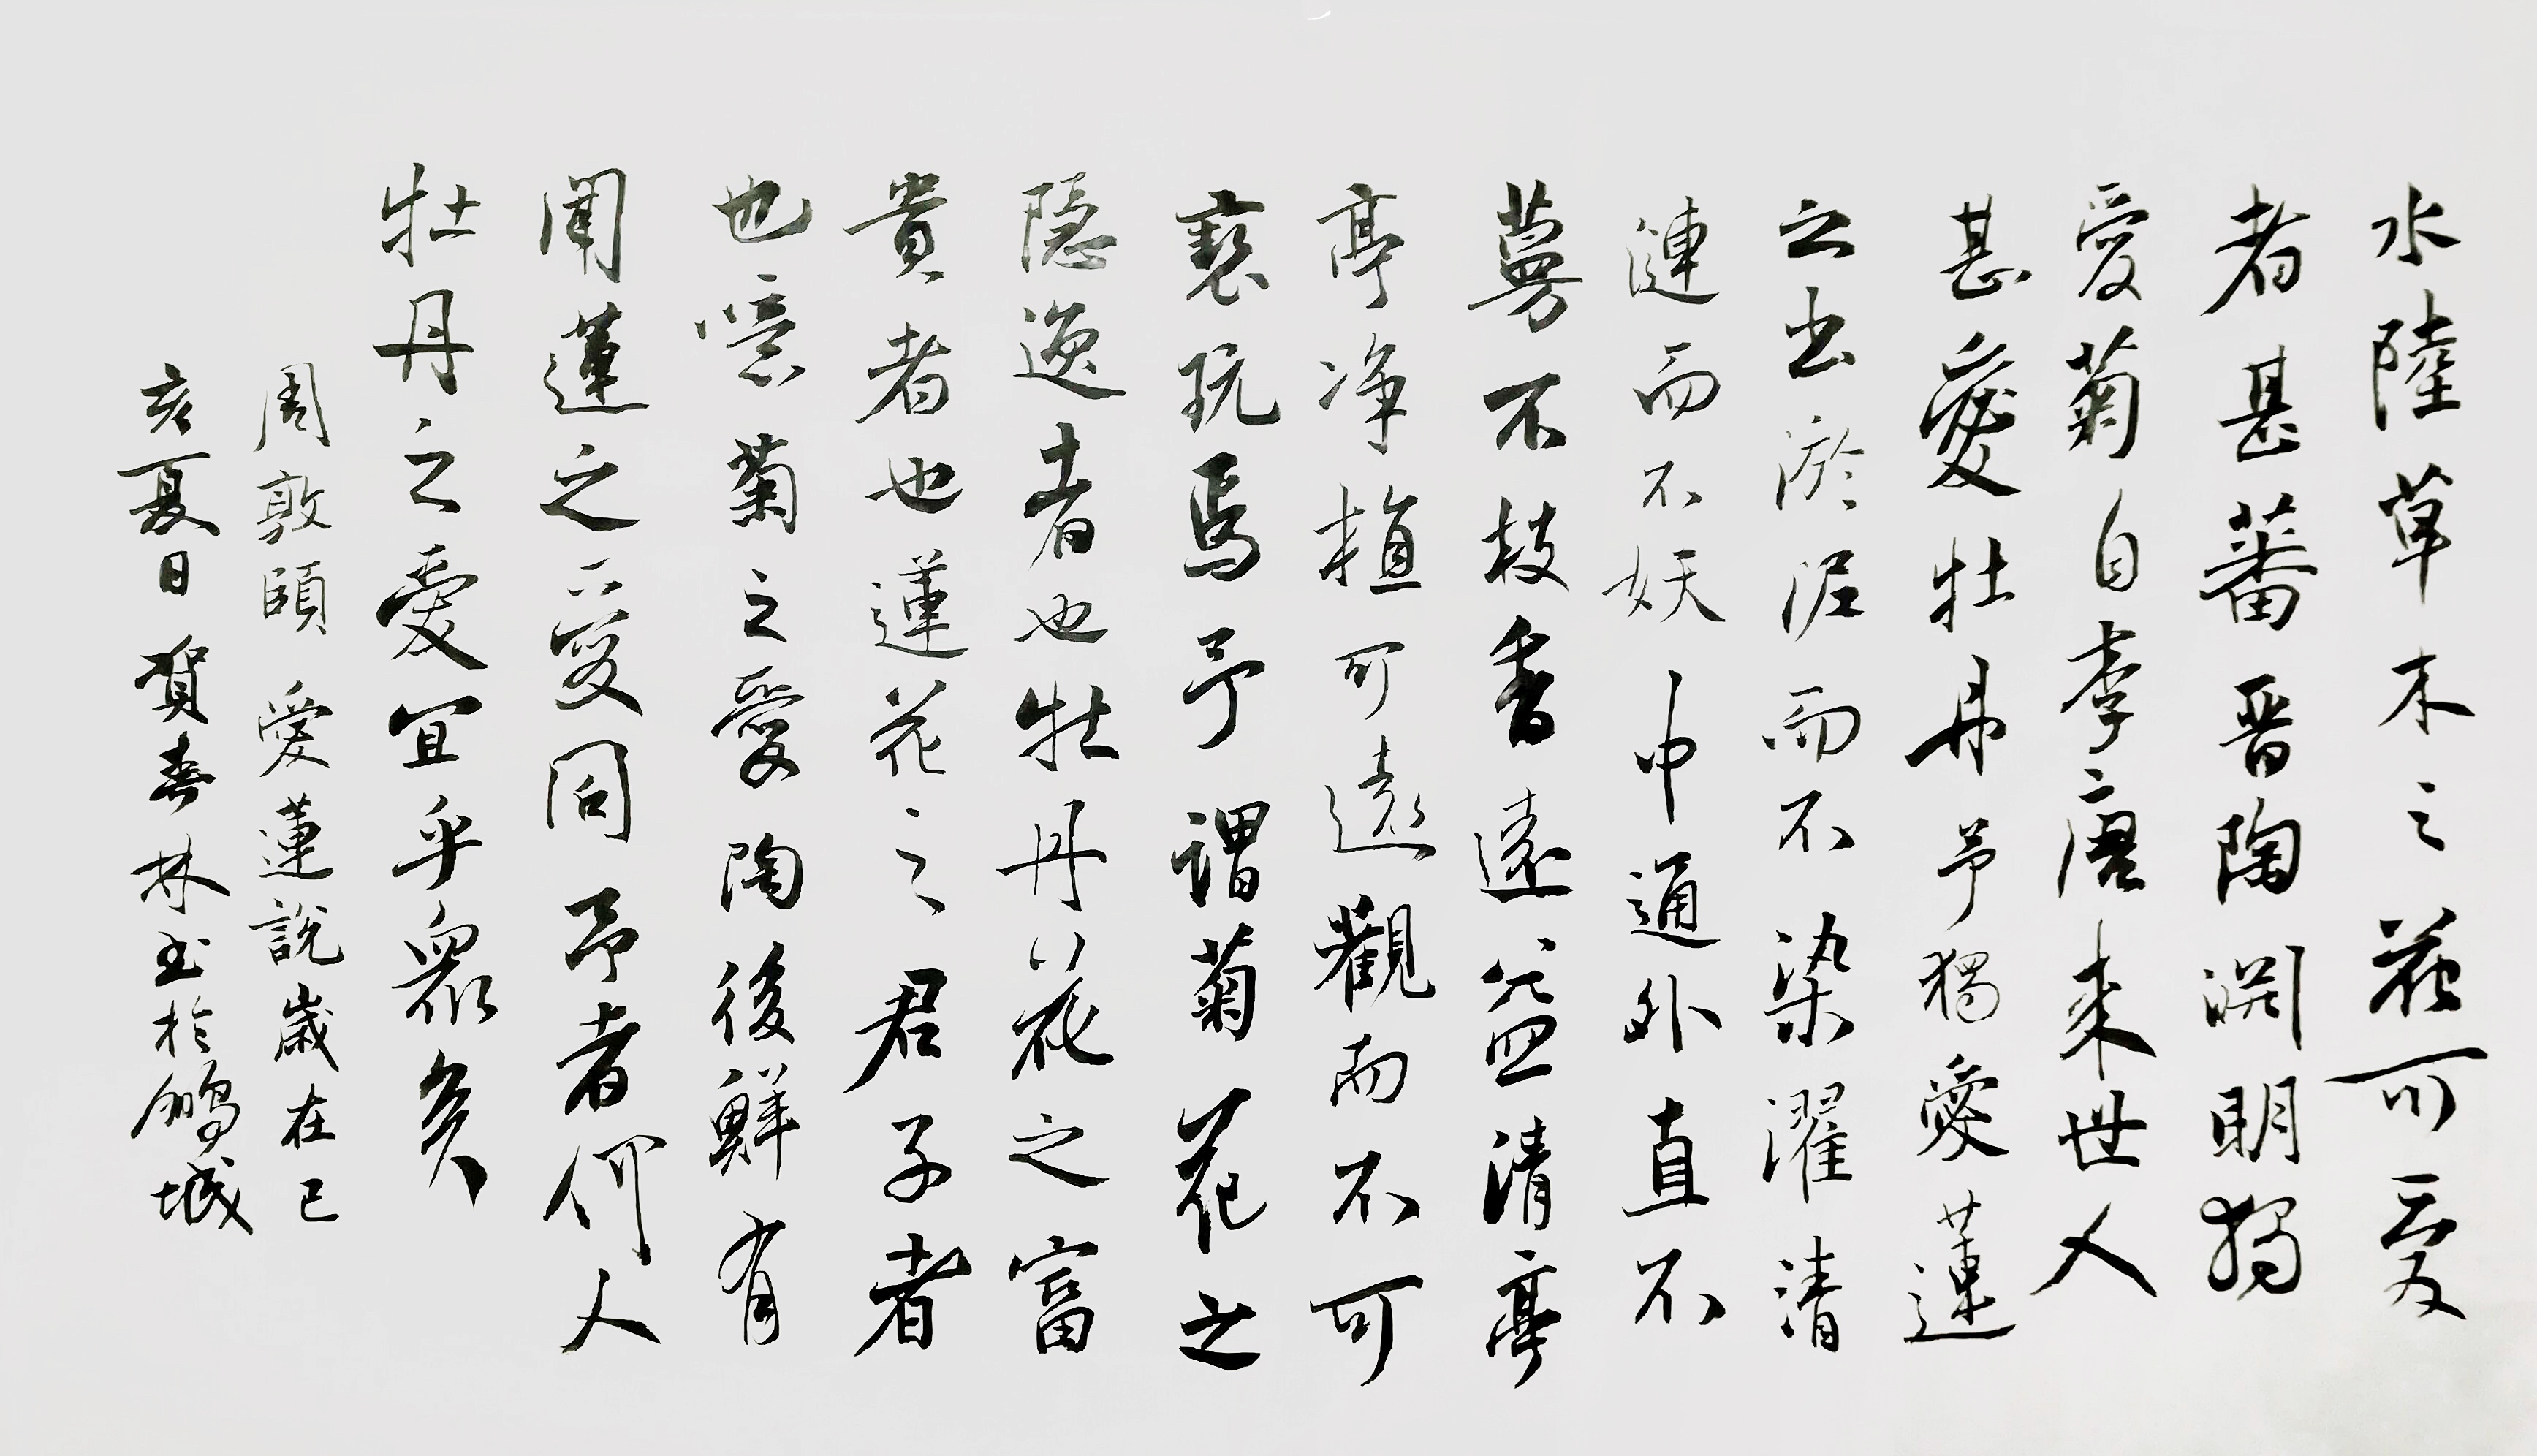 水陸草木之花可愛
者甚蕃晉陶淵明獨
愛菊自李唐來世人
甚愛牡丹予獨愛蓮
之出淤泥而不染濯清
漣而不妖中通外直不
蔓不枝香遠益清亭
亭净植可可遠觀而不可
褻玩焉予謂菊花之
隱逸者也牡丹花之富
貴者也蓮花之君子者
也噫菊之愛陶後鮮有
聞蓮之愛同予者何人
牡丹之愛宜乎眾矣
周敦頤愛蓮說歲在己
亥夏日賀春林書於鵬城